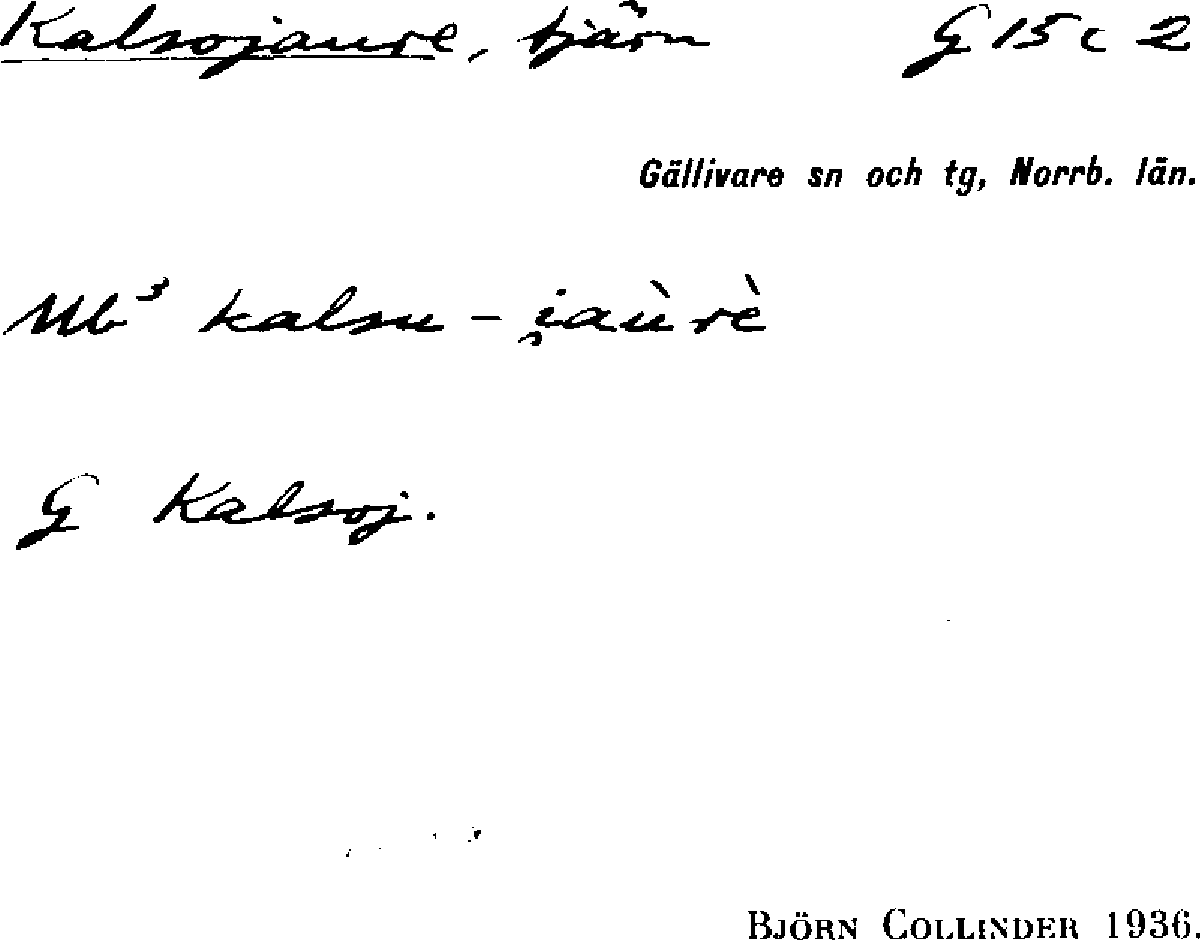 Kalsojaure, tjärn G 15 c 2
Gällivare sn och tg, Norrb. län.
Mb³ kalsu - i̯au̇̀rè
G Kalsoj.
BJÖRN COLLINDER 1936.